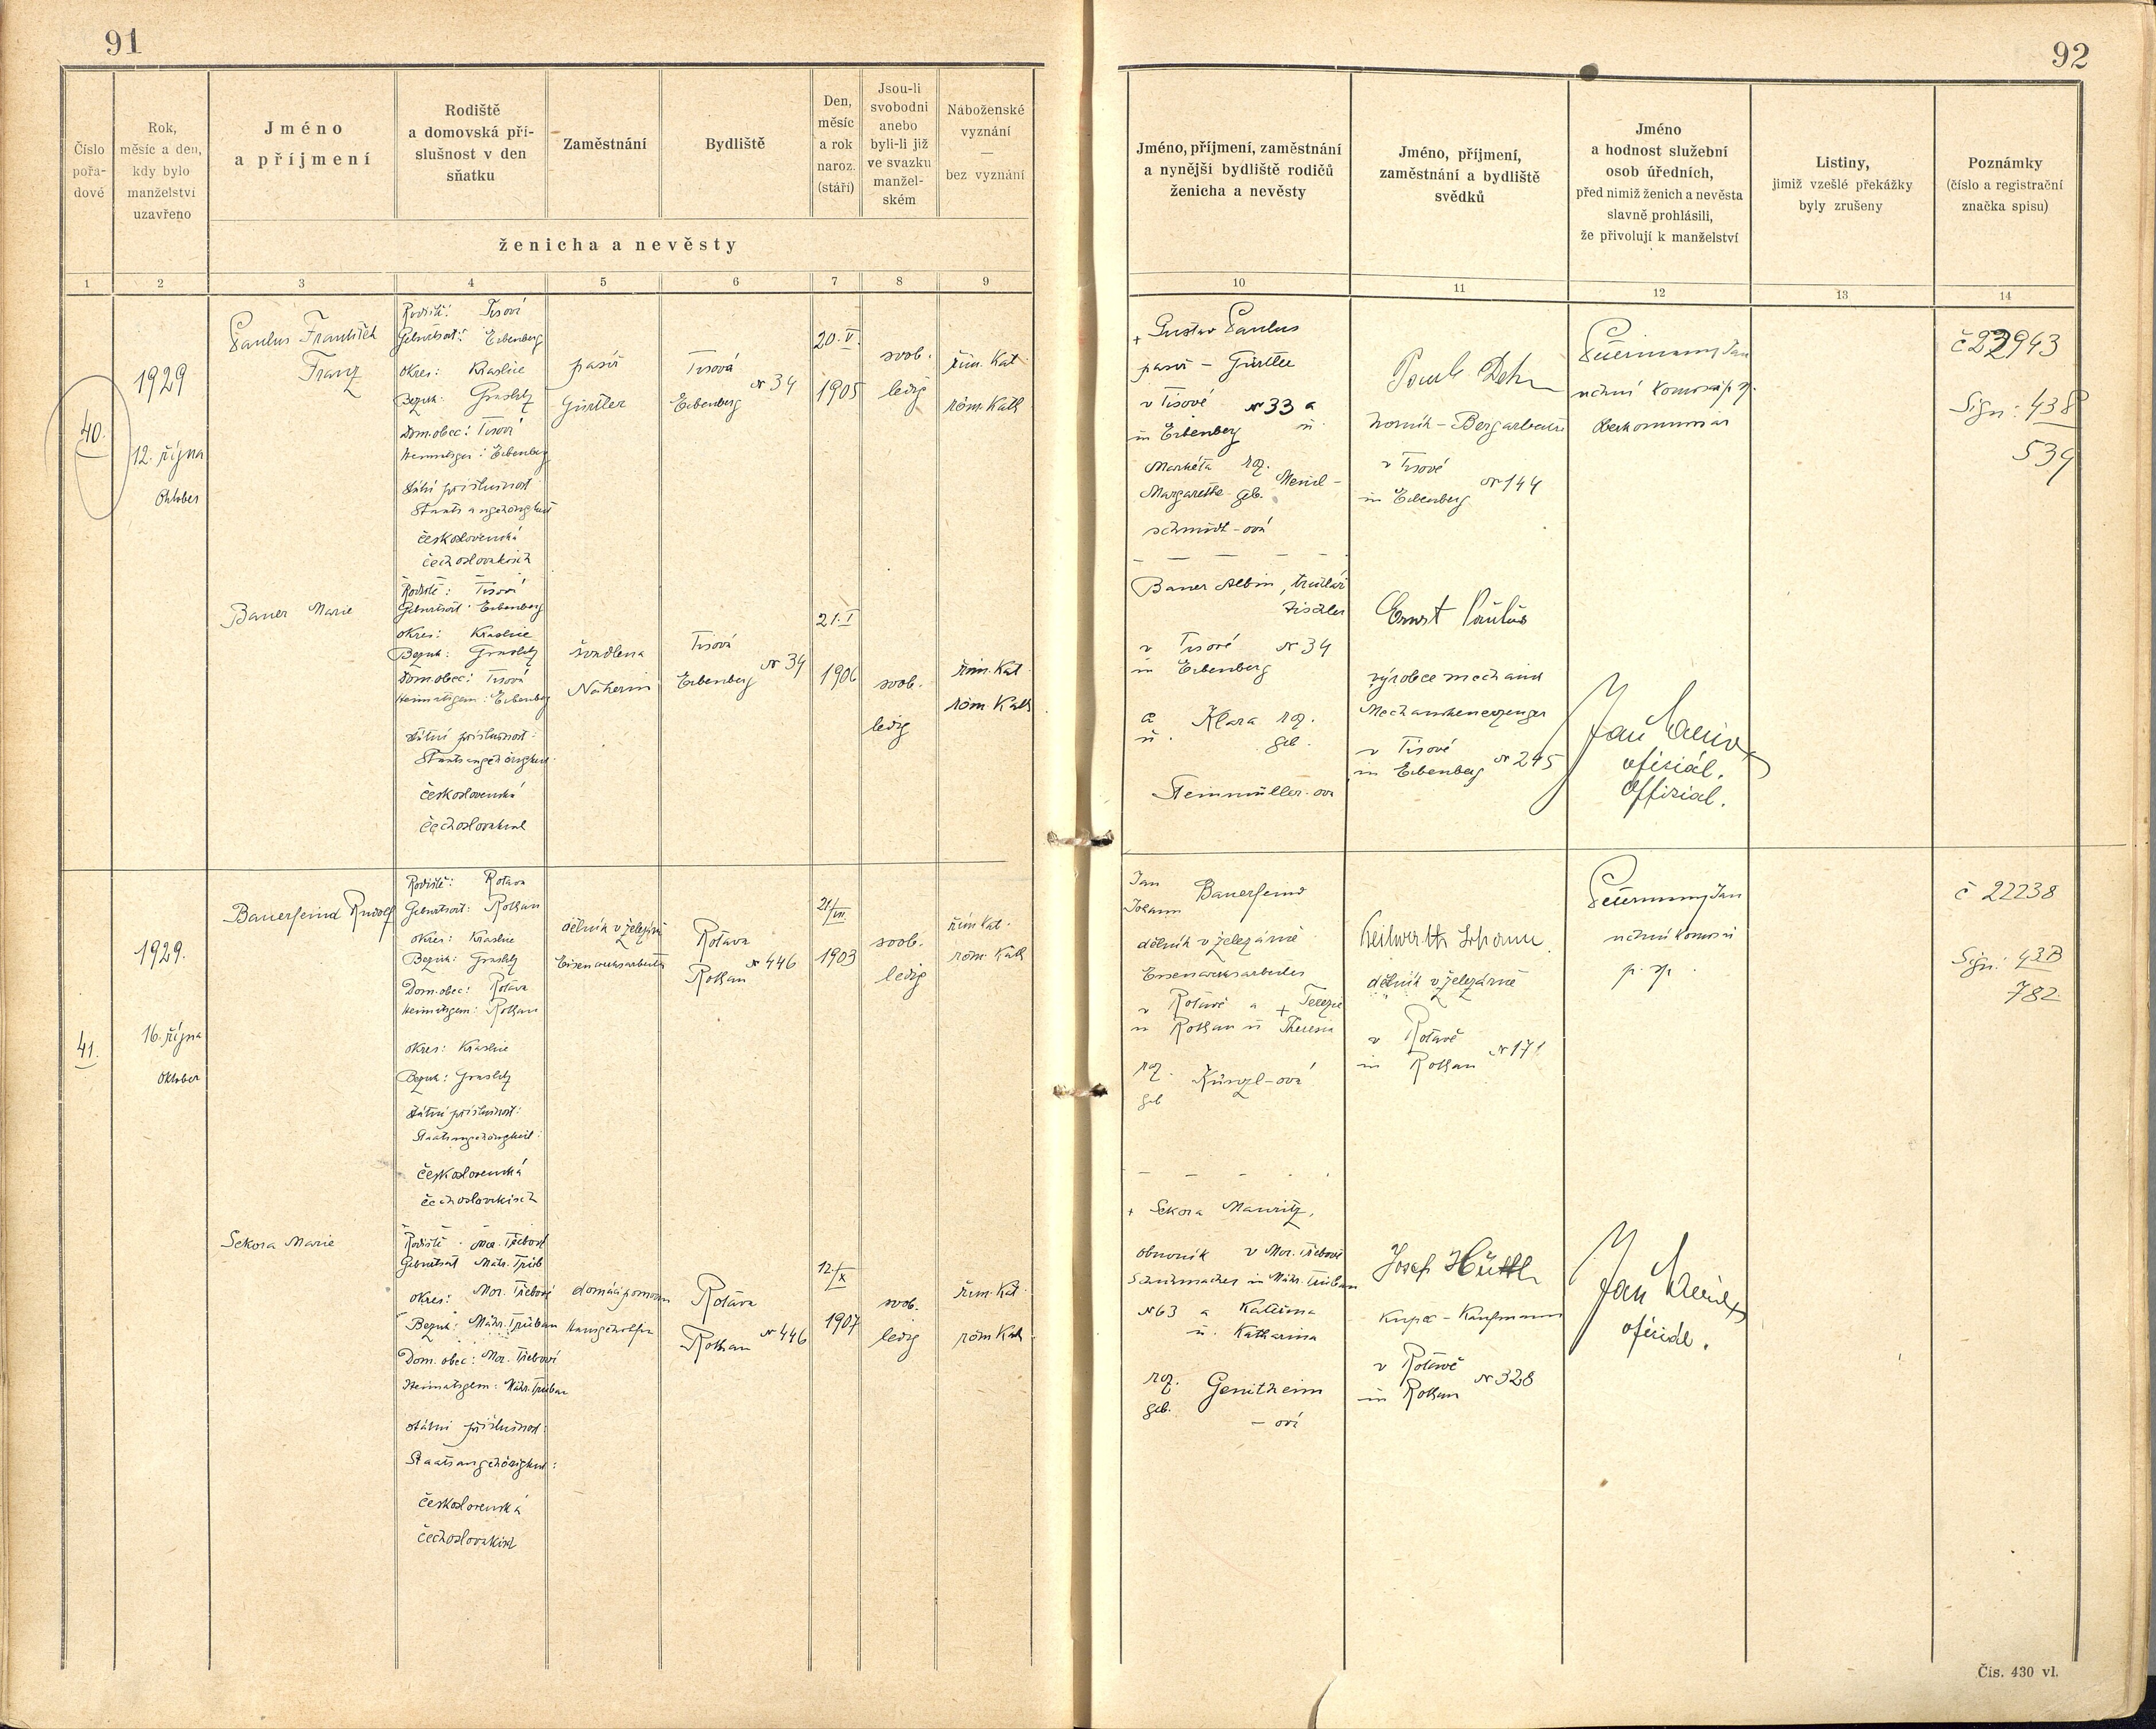 91
Číslo
pořa-
dové
Rok,
měsíc a den,
kdy bylo
manželství
uzavřeno
Jméno
a příjmení
Rodiště
a domovská pří-
slušnost v den
sňatku
Zaměstnání
Bydliště
Den,
měsíc
a rok
naroz.
(stáří)
Jsou-li
svobodni
anebo
byli-li již
ve svazku
manžel-
ském
Náboženské
vyznání
—
bez vyznání
ženicha a nevěsty
1 2 3 4 5 6 7 8 9
40.
1929
12. října
Oktober
Paulus František
Franz
Rodiště: Tisová
Geburtsort: Eibenberg
Okres: Kraslice
Bezirk: Graslitz
Dom. obec: Tisová
Heimatsgem: Eibenberg
Státní příslušnost
Staatsangehörigkeit
československá
čechoslovakisch
pasíř
Gürtler
Tisová
Eibenberg № 34
20. V.
1905
svob.
ledig
řím. kat.
röm. kath
Bauer Marie
Rodiště: Tisová
Geburtsort: Eibenberg
Okres: Kraslice
Bezirk: Graslitz
Dom. obec: Tisová
Heimatsgem: Eibenberg
Státní příslušnost:
Staatsangehörigkeit
československá
čechoslovakisch
švadlena
Näherin
Tisová
Eibenberg № 34
21. I
1906
svob.
ledig
řím. kat.
röm. kath
41.
1929.
16. října
Oktober
Bauerfeind Rudolf
Rodiště: Rotava
Geburtsort: Rothau
Okres: Kraslice
Bezirk: Graslitz
Dom. obec: Rotava
Heimatsgem: Rothau
Okres: Kraslice
Bezirk: Graslitz
Státní příslušnost:
Staatsangehörigkeit:
československá
čechoslovakisch
dělník v železárně
Eisenwerksarbeiter
Rotava
Rothau № 446
21/III.
1903
svob.
ledig
řím. kat.
röm. kath
Sekora Marie
Rodiště Mor. Třebová
Geburtsort Mähr. Trüb
Okres: Mor. Třebová
Bezirk: Mähr. Trübau
Dom. obec: Mor. Třebová
Heimatsgem: Mähr. Trübau
Státní příslušnost:
Staatsangehörigkeit:
československá
čechoslovakisch
domácí pomocn
Hausgehilfin
Rotava
Rothau № 446
12./X
1907
svob.
ledig
řím. kat.
röm kath
92
Jméno, příjmení, zaměstnání
a nynější bydliště rodičů
ženicha a nevěsty
Jméno, příjmení,
zaměstnání a bydliště
svědků
Jméno
a hodnost služební
osob úředních,
před nimiž ženich a nevěsta
slavně prohlásili,
že přivolují k manželství
Listiny,
jimiž vzešlé překážky
byly zrušeny
Poznámky
(číslo a registrační
značka spisu)
10 11 12 13 14
+ Gustav Paulus
pasíř – Gürtler
v Tisové № 33 a
in Eibenberg u.
Markéta roz.
Margarethe geb. Meinl-
schmidt-ová
hornik – Bergarbeiter
v Tisové
in Eibenberg № 144
Jan
Oberkommissär
č 22943
Sign: 438
539
Bauer Albin, truhlář
Tischler
v Tisové № 34
in Eibenberg
a Klara roz.
u. geb.
Steinmüller-ová
Ernst Paulus
výrobce mechanik
Mechanikenerzeuger
v Tisové
in Eibenberg № 245
Jan
oficiál.
Offizial.
Jan Bauerfeind
Johann
dělník v železárně
Eisenwerksarbeiter
v Rotavě a + Terezie
in Rothau u Theresia
roz. Künzl-ová
geb
Keilwerth Johann
dělník v železárně
v Rotavě
in Rothau № 171
Jan
p. p.
č 22238
Sign: 43B
782
+ Sekora Mauritz,
obuvník v Mor. Třebové
Schuhmacher in Mähr. Trübau
№ 63 a Kateřina
u. Katharina
roz. Genitheim
geb. – ová
Josef Hüttl
Kupec – Kaufmann
v Rotavě
in Rothau № 328
Jan
oficiál.
Čis. 430 vl.